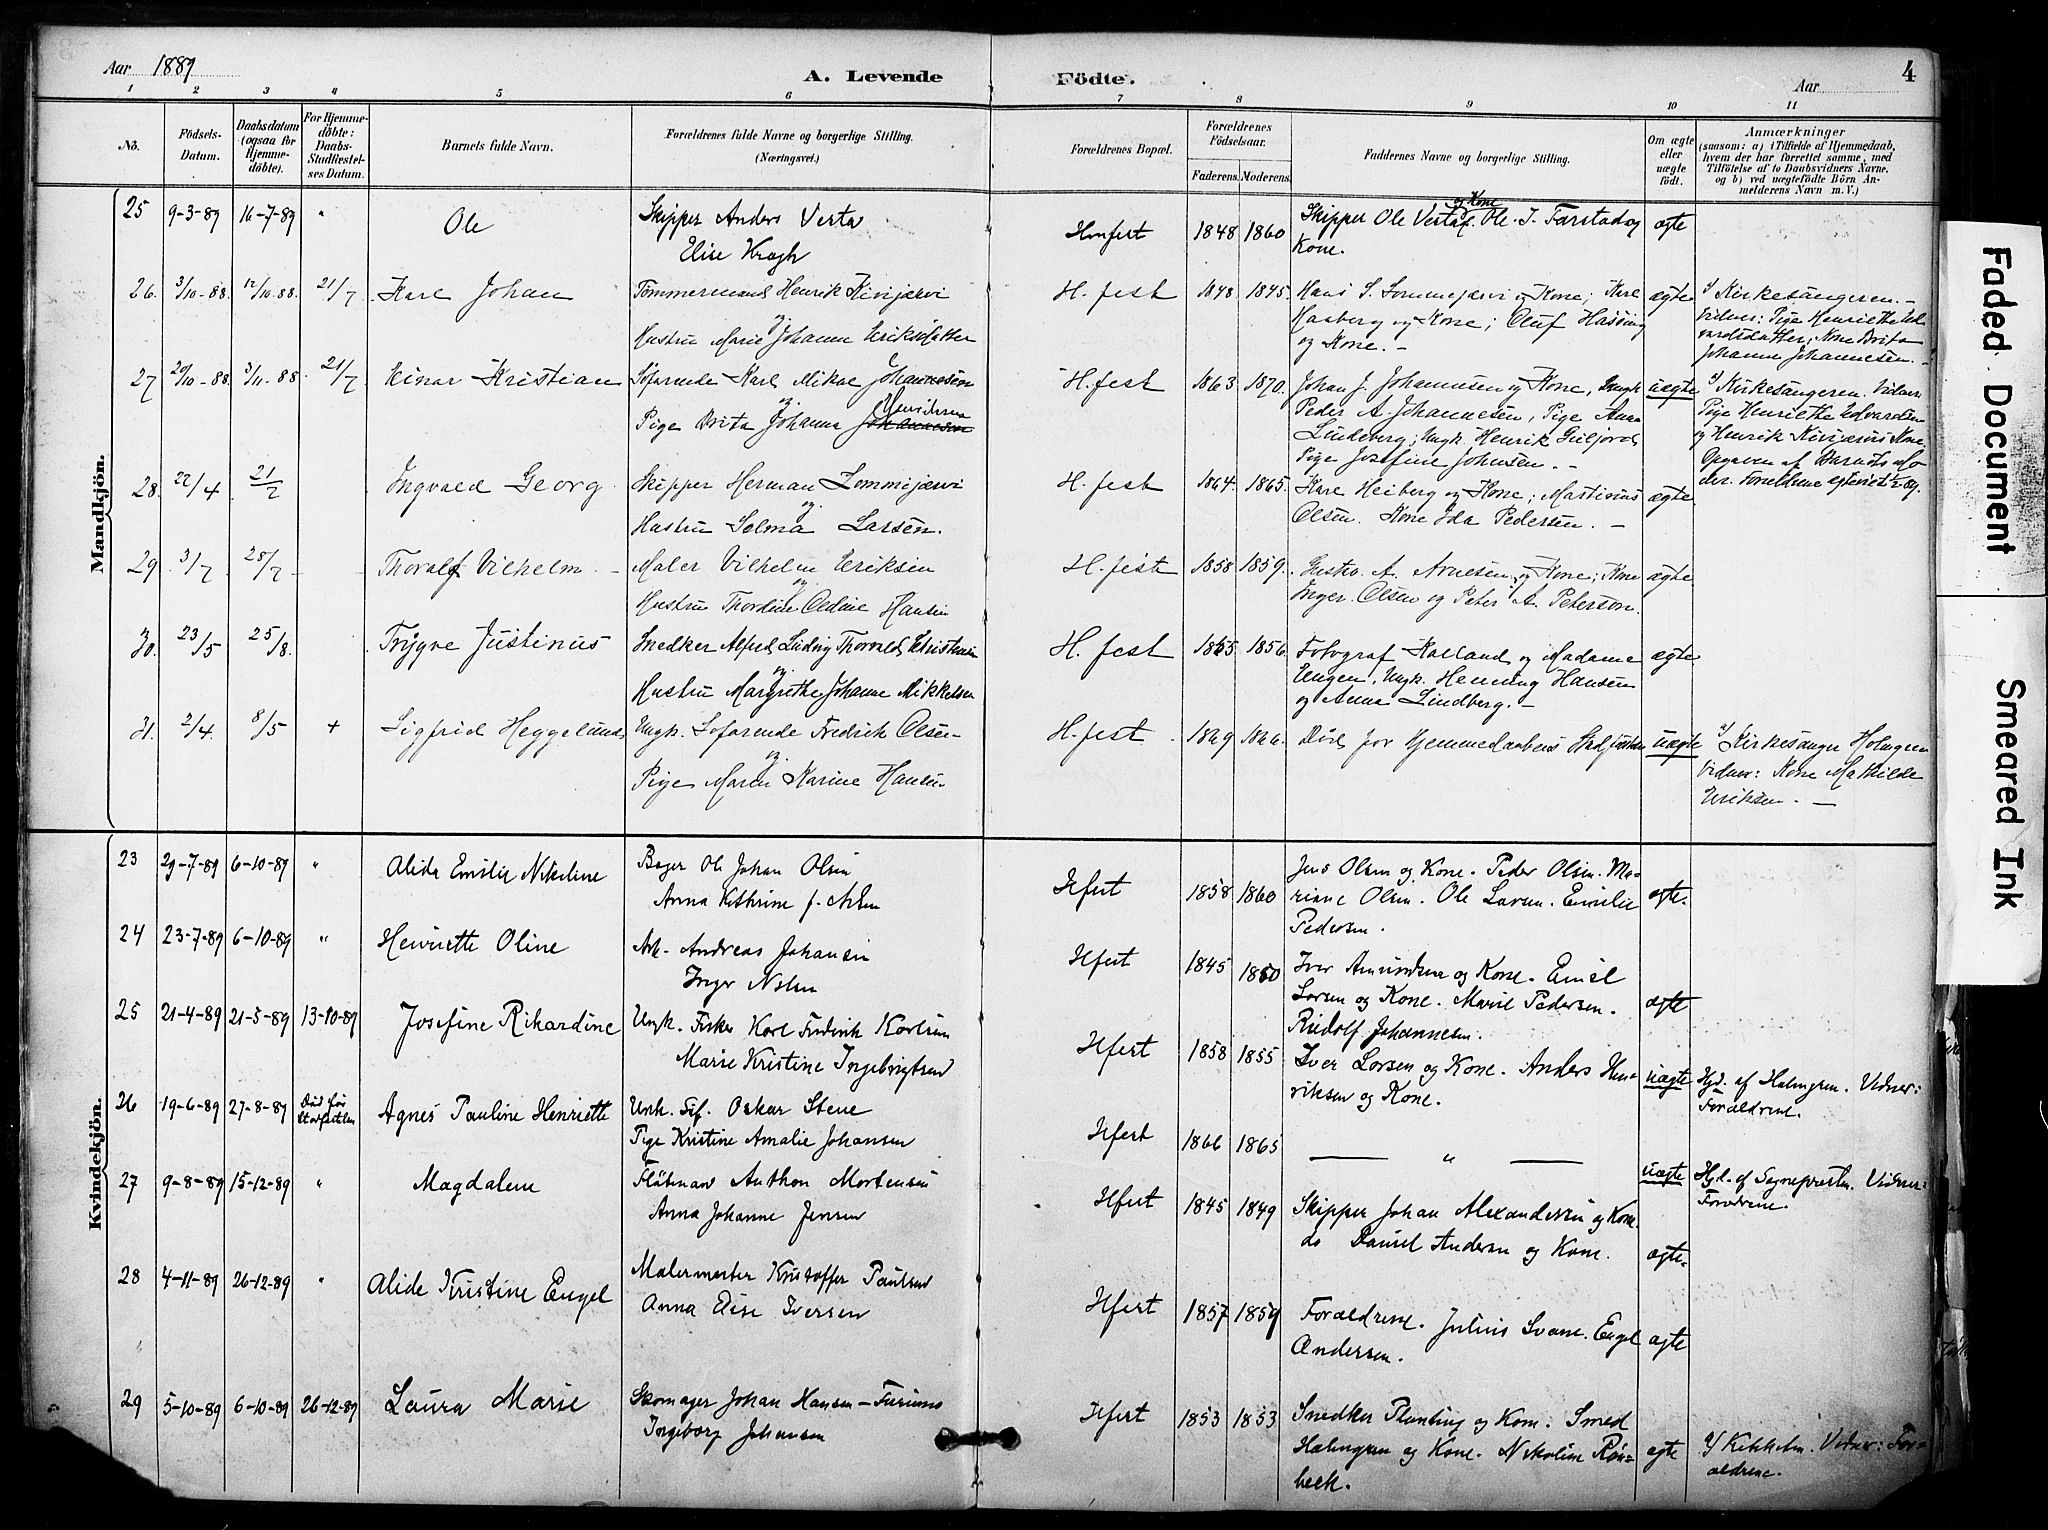 Aar 1889
A. Levende Födte.
Aar
4
1 2 3 4 5 6 7 8 9 10 11
No.
Födsels-Datum.
Daabsdatum (ogsaa for Hjemme-døbte).
For Hjemme-døbte: Daabs-Stadfæstel-ses Datum.
Barnets fulde Navn.
Forældrenes fulde Navne og borgerlige Stilling. (Næringsvei.)
Forældrenes Bopæl.
Forældrenes Födselsaar.
Faderens. Moderens.
Faddernes Navne og borgerlige Stilling.
Om ægte eller uægte født.
Anmærkninger
(saasom: a) i Tilfælde af Hjemmedaab,
hvem der har forrettet samme, med
Tilföielse af to Daabsvidners Navne.
og b) ved uægtefödte Börn An-
melderens Navn m. V.)
Mandkjön.
25 9-3-89 16-7-89 " Ole Skipper Anders Verta Hmfest 1848 1860 Skipper Ole Verta og Kone. Ole J. Farstad og ægte
Elise Kragh Kone.
26. 3/10-88. 12/10 88. 21/7 Karl Johan Tømmermand Henrik Kivijærvi H. fest 1848 1845. Hans S. Lommejærvi og Kone; Karl ægte a) Kirkesangeren. -
og Hustru Marie Johanne Eriksdatter Haaberg og Kone; Oluf Hasøing og Kone. - Vidner: Pige Henriette Edvardsdatter, Kone Brita Johanna Johannesen. -
27 20/10-88. 3/11-88 21/7 Einar Kristian Søfarende Karl Mikal Johannesen H. fest 1863 1870. Johan J. Johannesen og Kone, Ungk. uægte a) Kirkesangeren. Vidner:
og Pige Brita Johanna Johannesen Henriksen Peder A. Johannesen, Pige Anna Lindeberg; Ungk. Henrik Pige Josefine Johnsen. - Pige Henriette Edvardsen og Henrik Kivijærvis Kone. Opgaven af Barnets Moder.
28. 22/4 21/7 Ingvald Georg Skipper Herman Lommijærvi H. fest 1864. 1865. Karl Heiberg og Kone; Martinus ægte
og Hustru Selma Larsen. Olsen. Kone Ida Pedersen. -
29. 3/7 28/7 Thoralf Vilhelm Maler Vilhelm Eriksen H. fest 1858 1859. Gustav A. Arnesen og Kone; Kone ægte
og Hustru Thordine Oldine Hansen Inger Olsen og Peter A. Peterson.
30. 23/5 25/8. Trygve Justinus Snedker Alfred Ludvig Thorvald Kristensen H. fest 1865 1856. Fotograf Halland og Madame ægte
og Hustru Margrethe Johanne Mikkelsen Engen, Ungk. Henning Hansen og Anna Lindberg. -
31. 2/4. 8/5 + Sigfrid Heggelund Ungk. Søfarende Fredrik Olsen H. fest 1869 1866. Død for Hjemmedaabens uægte a) Kirkesanger Holmgren
og Pige Maren Karine Hansen. Vidner: Kone Mathilde Eriksen. -
Kvindekjön.
23 29-7-89 6-10-89 " Alida Emilie Nikoline Bager Ole Johan Olsen Hfest 1858 1860 Jens Olsen og Kone. Peder Olsen. Ma- ægte.
Anna Kathrine f. Nilsen riane Olsen. Ole Larsen. Emilie Pedersen.
24 23-7-89 6-10-89 " Henriette Oline Arb. Andreas Johansen Hfest 1845 1850 Iver Amundsen og Kone. Emil ægte
Inger Nilsen Larsen og Kone. Marie Pedersen. Rudolf Johannesen.
25 21-4-89 21-5-89 13-10-89 Josefine Rikardine Ungk. Fisker Karl Fredrik Karlsen Hfest 1858 1855 Iver Larsen og Kone. Anders Hen- uægte Hjd. af Holmgren. Vidner:
Marie Kristine Ingebrigtsen riksen og Kone. Forældrene.
26 19-6-89 27-8-89 Død før Stadfæstelsen Agnes Pauline Henriette Unk. Sif. Oskar Stene Hfest 1866 1865 — " — uægte Hjd. af Sognepræsten. Vidner:
Pige Kristine Amalie Johansen Forældrene.
27 9-8-89 15-12-89 " Magdalene Flötmand Anthon Mortensen Hfest 1845 1849 Skipper Johan Alexandersen og Kone. ægte.
Anna Johanne Jensen do Daniel Andersen og Kone.
28 4-11-89 26-12-89 " Alide Kristine Engel Malermester Kristoffer Paulsen Hfest 1857 1859 Forældrene. Julius Svane. Engel ægte
Anna Elise Iversen Andersen.
29 5-10-89 6-10-89 26-12-89 Laura Marie Skomager Johan Hansen - Furumo Hfest 1853 1853 Snedker Planting og Kone. Smed ægte a/ Vidner: For-
Ingeborg Johansen Halmgren og Kone. Nikoline Rön- beck. ældrene.
Faded Document
Smeared Ink